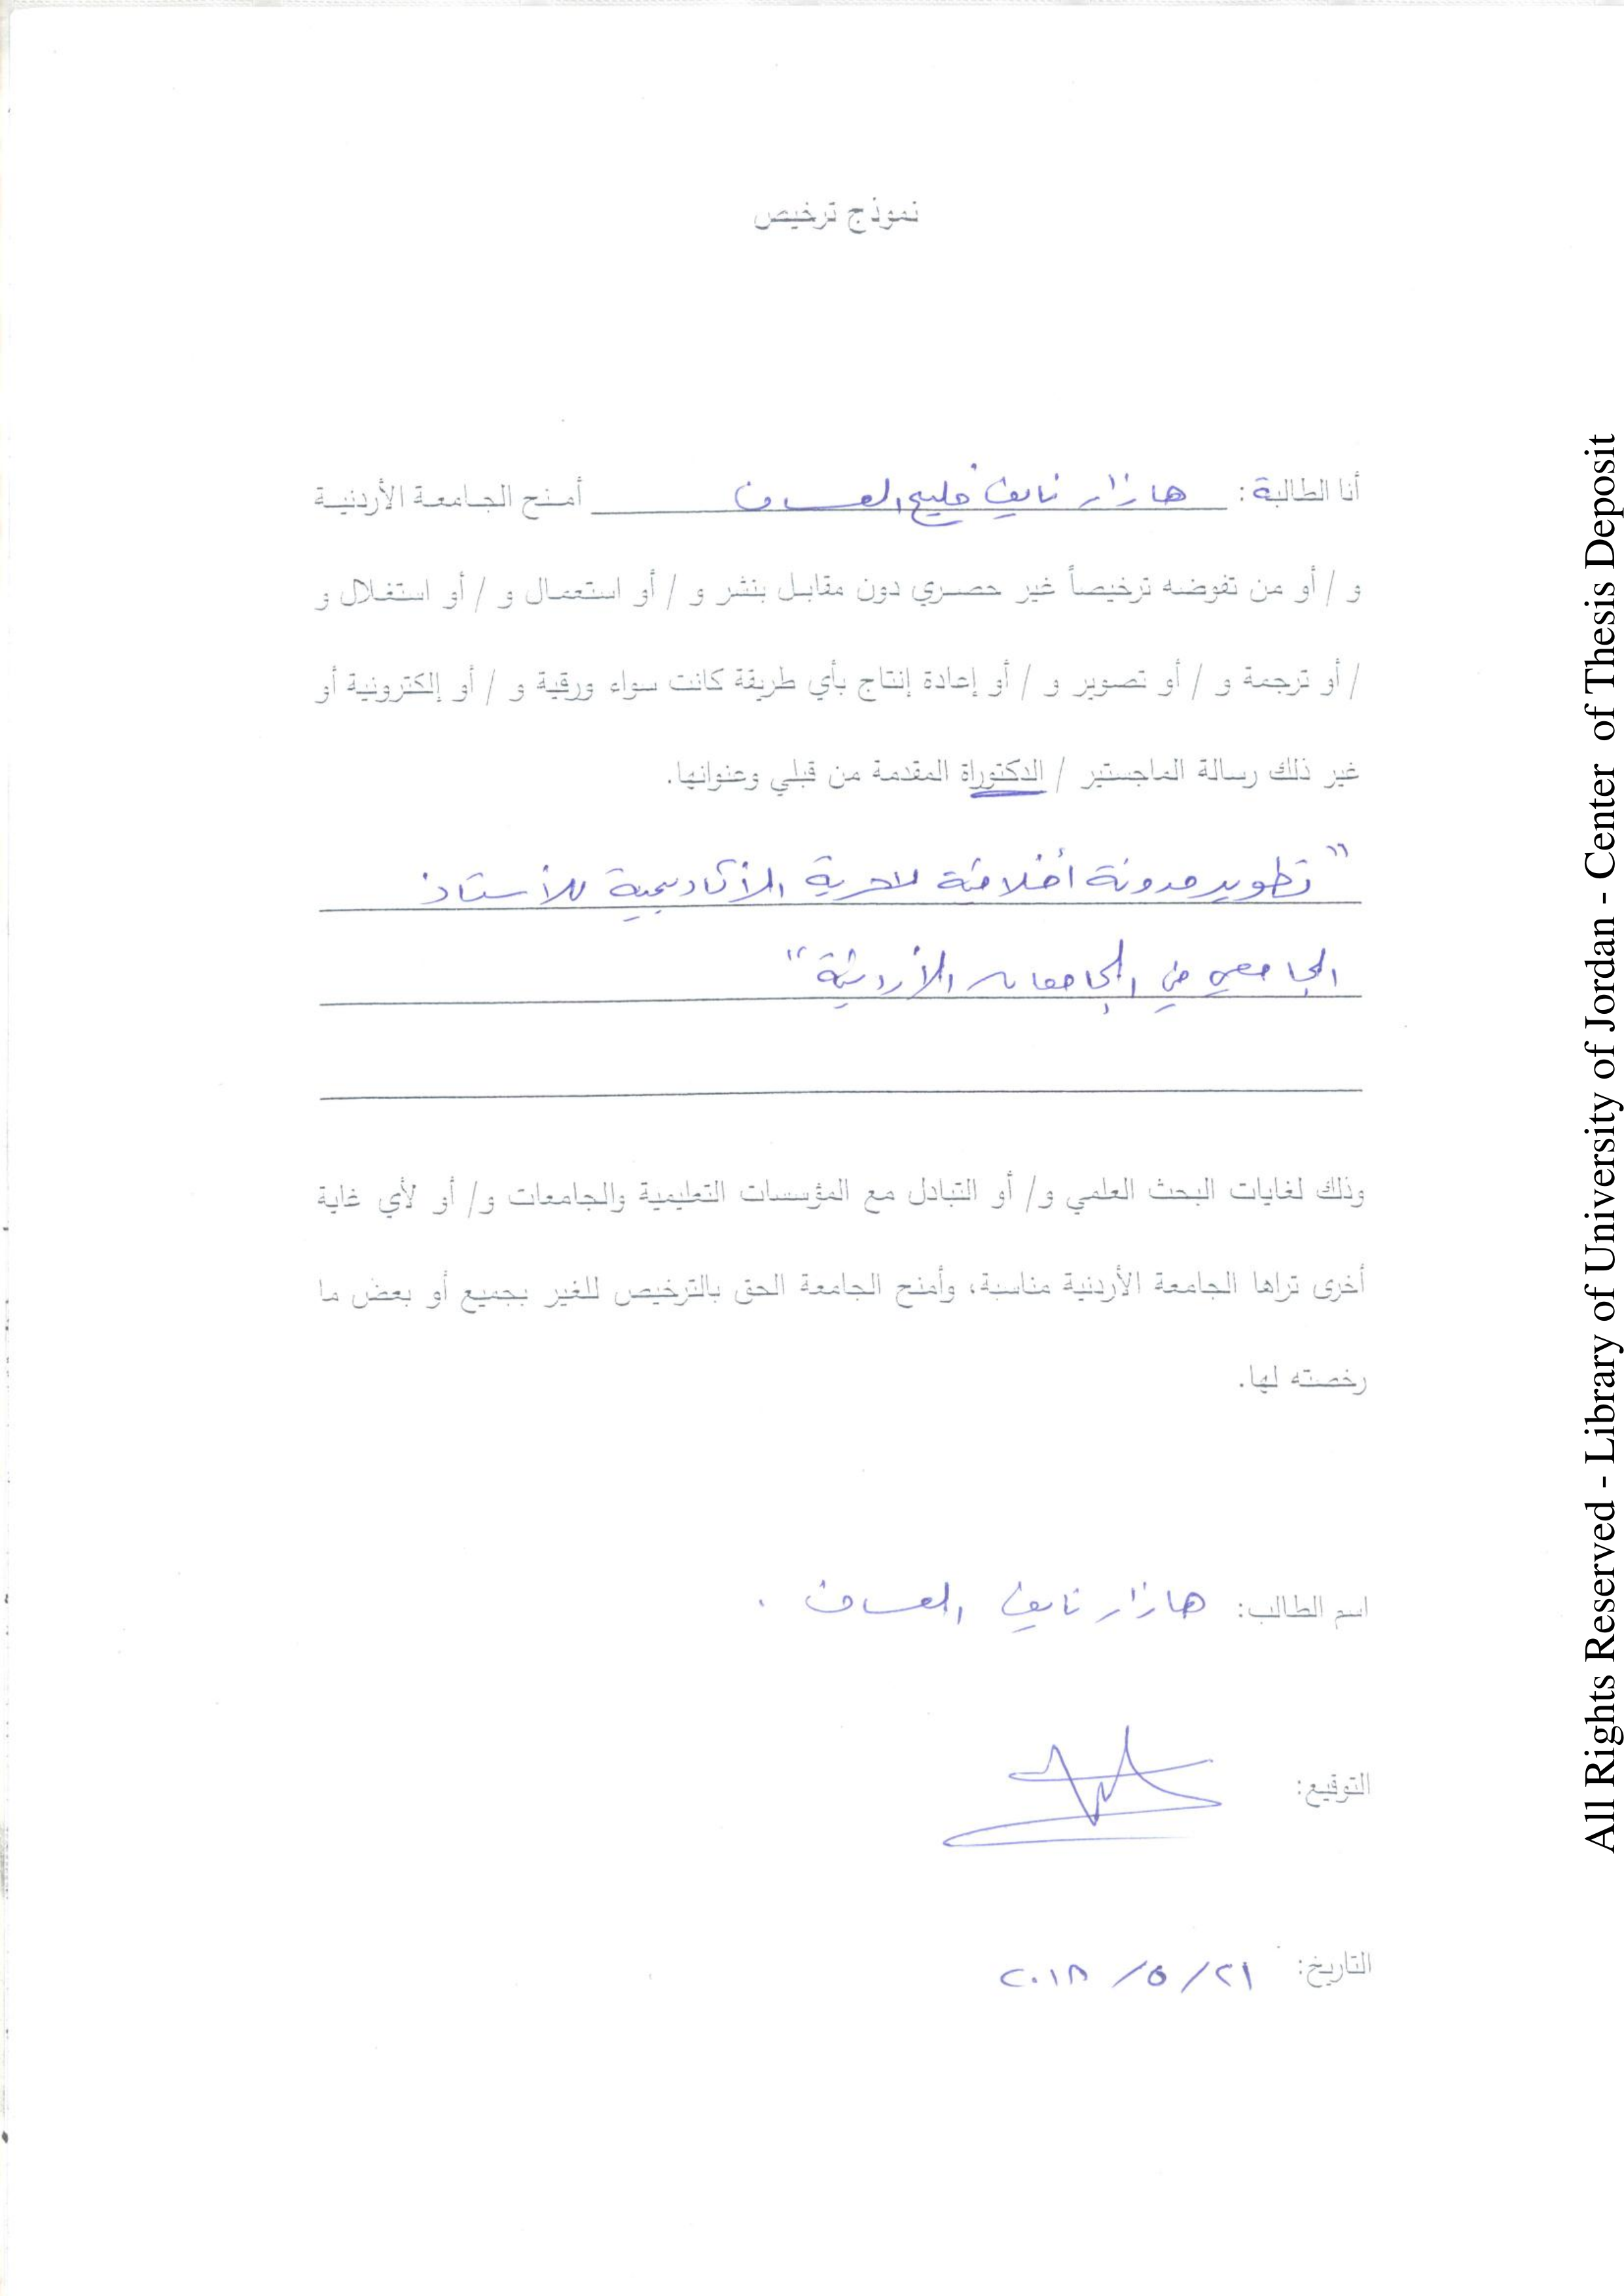 نموذج ترخيص
أنا الطالبة : هازار نايف فليح العساف أمنح الجامعة الأردنية
و / أو من تفوضه ترخيصاً غير حصري دون مقابل بنشر و / أو استعمال و / أو استغلال و
/ أو ترجمة و / أو تصوير و / أو إعادة إنتاج بأي طريقة كانت سواء ورقية و / أو إلكترونية أو
غير ذلك رسالة الماجستير / الدكتوراة المقدمة من قبلي وعنوانها.
"تطوير مدونة أخلاقية للحرية الأكاديمية للأستاذ
الجامعي في الجامعات الأردنية"
وذلك لغايات البحث العلمي و/ أو التبادل مع المؤسسات التعليمية والجامعات و/ أو لأي غاية
أخرى تراها الجامعة الأردنية مناسبة، وأمنح الجامعة الحق بالترخيص للغير بجميع أو بعض ما
رخصته لها.
اسم الطالب: هازار نايف العساف .
التوقيع:
التاريخ: ٢١/ ٥/ ٢٠١٨
All Rights Reserved - Library of University of Jordan - Center of Thesis Deposit